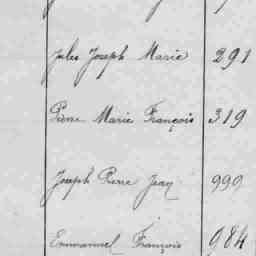 Jules Joseph Marie 291
Pierre Marie François 319
Joseph Pierre Jean 999
Emmanuel François 984